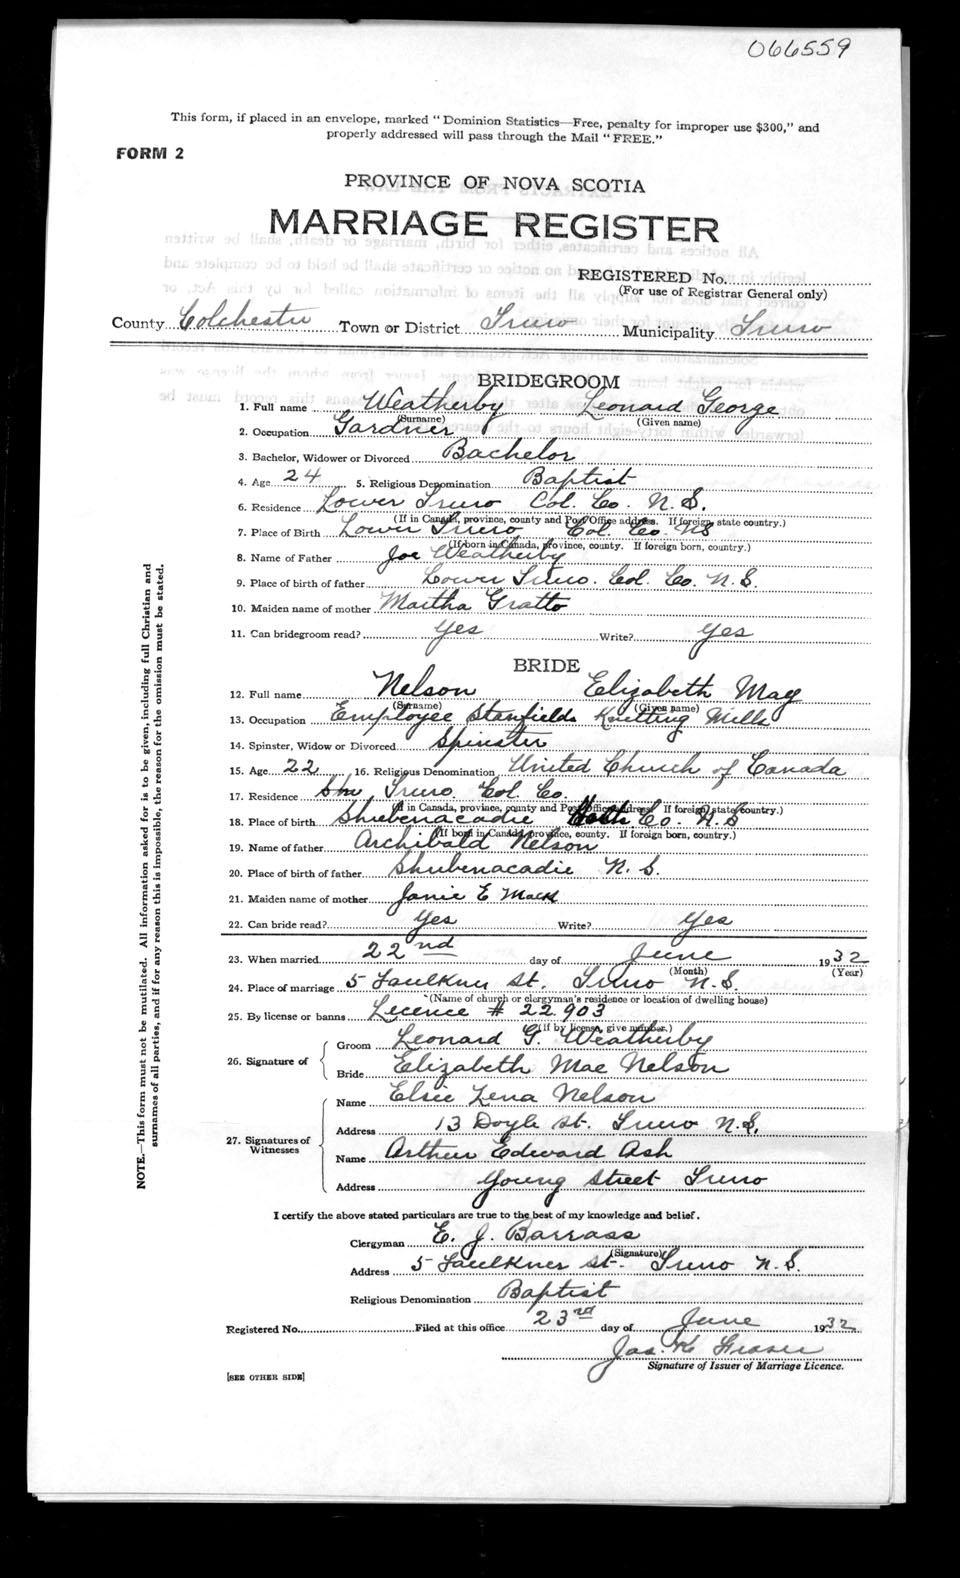 066559
This form, if placed in an envelope, marked "Dominion Statistics—Free, penalty for improper use $300," and
properly addressed will pass through the Mail "FREE."
FORM 2
PROVINCE OF NOVA SCOTIA
MARRIAGE REGISTER
REGISTERED No.
(For use of Registrar General only)
County Colchester Town or District Truro Municipality Truro
BRIDEGROOM
1. Full name Weatherby Leonard George
(Surname) (Given name)
2. Occupation Gardner
3. Bachelor, Widower or Divorced Bachelor
4. Age 24 5. Religious Denomination Baptist
6. Residence Lower Truro Col. Co. N.S.
(If in Canada, province, county and Post Office address. If foreign, state country.)
7. Place of Birth Lower Truro Col. Co. NS
(If born in Canada, province, county. If foreign born, country.)
8. Name of Father Joe Weatherby
9. Place of birth of father Lower Truro. Col. Co. N.S.
10. Maiden name of mother Martha Gratto
11. Can bridegroom read? Yes Write? Yes
BRIDE
12. Full name Nelson Elizabeth May
(Surname) (Given name)
13. Occupation Employee Stanfields Knitting Mills
14. Spinster, Widow or Divorced Spinster
15. Age 22 16. Religious Denomination United Church of Canada
17. Residence Truro. Col. Co.
(If in Canada, province, county and Post Office address. If foreign, state country.)
18. Place of birth Shubenacadie Co. N.S
(If born in Canada, province, county. If foreign born, country.)
19. Name of father Archibald Nelson
20. Place of birth of father Shubenacadie N.S.
21. Maiden name of mother Janie E Mack
22. Can bride read? Yes Write? Yes
23. When married 22nd day of June 1932
(Month) (Year)
24. Place of marriage 5 Faulkner St. Truro N.S.
(Name of church or clergyman's residence or location of dwelling house)
25. By license or banns Licence # 22.903
(If by license, give number.)
26. Signature of Groom Leonard G. Weatherby
Bride Elizabeth Mae Nelson
27. Signatures of Witnesses
Name Elsie Lena Nelson
Address 13 Doyle St. Truro N.S.
Name Arthur Edward Ash
Address Young Street Truro
I certify the above stated particulars are true to the best of my knowledge and belief.
Clergyman E. J. Barrass
(Signature)
Address 5 Faulkner St. Truro N.S.
Religious Denomination Baptist
Registered No. Filed at this office 23rd day of June 1932
Jas. K Fraser
Signature of Issuer of Marriage Licence.
[SEE OTHER SIDE]
NOTE.—This form must not be mutilated. All information asked for is to be given, including full Christian and
surnames of all parties, and if for any reason this is impossible, the reason for the omission must be stated.